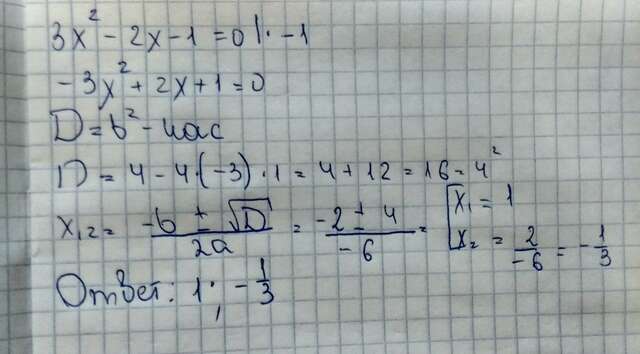 3x² - 2x - 1 = 0 |· -1
-3x² + 2x + 1 = 0
D = b² - 4ac
D = 4 - 4·(-3)·1 = 4 + 12 = 16 = 4²
x₁,₂ = (-b ± √D)/(2a) = (-2 ± 4)/(-6) = [x₁ = 1
x₂ = 2/(-6) = -1/3
Ответ: 1; -1/3